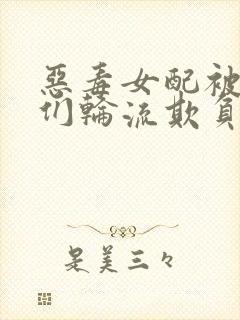 惡毒女配被
们輪流欺負
是美三々